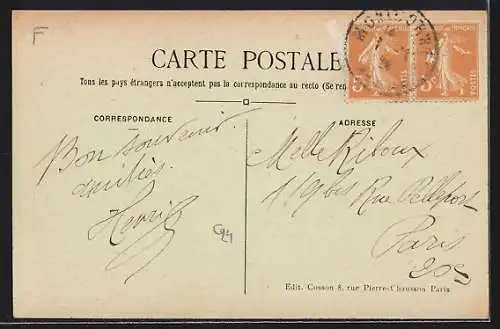 F
CARTE POSTALE
Tous les pays étrangers n'acceptent pas la correspondance au recto (Se ren
CORRESPONDANCE
ADRESSE
Bon souvenir
d'amitiés
Henri
C94
Melle Riboux
119bis Rue Pelleport
Paris
20e
Edit. Cosson 8, rue Pierre-Chausson Paris
POSTES
POSTES